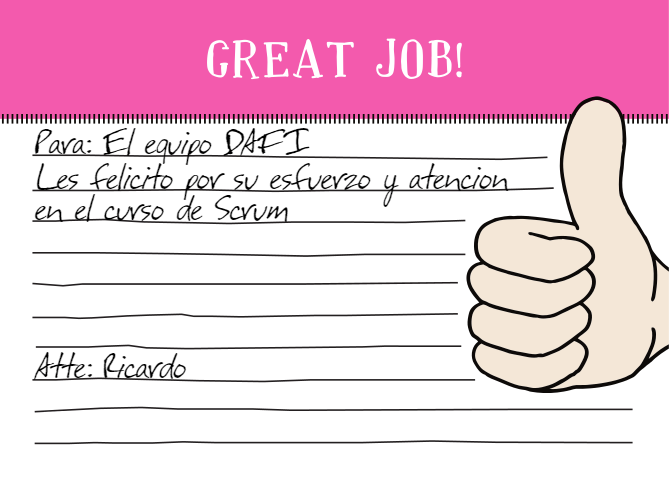 GREAT JOB!
Para: El equipo DAFI
Les felicito por su esfuerzo y atencion
en el curso de Scrum
Atte: Ricardo